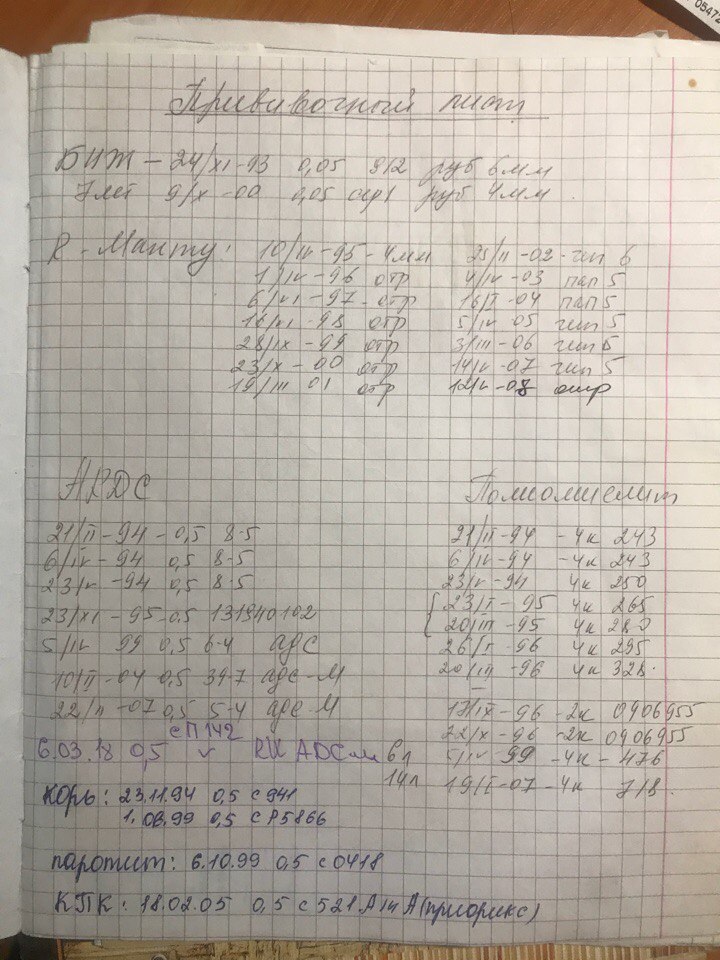 0547
Прививочный лист
БЦЖ – 24/XI-93 0,05 912 руб 6мм
7 лет 9/X -00 0,05 сер1 руб 4мм
R-Манту: 10/IV-95-4мм
1/IV-96 отр
6/VI-97-отр
16/VI-98 отр
28/IX-99 отр
23/X-00 отр
19/III 01 отр
25/II-02-гип 6
4/IV-03 пап 5
16/I-04 пап 5
5/IV 05 гип 5
3/III-06 гип 6
14/V-07 гип 5
12/V-08 отр
АКДС
21/II-94-0,5 8-5
6/IV-94 0,5 8-5
23/V-94 0,5 8-5
23/XI-95-0,5 131940102
5/IV 99 0,5 6-4 АДС
10/II-04 0,5 39-7 АДС-М
22/II-07 0,5 5-4 АДС-М
6.03.18 0,5 с П142 V RV ADCм
Полиомиелит
21/II-94 -4к 243
6/IV-94 -4к 243
23/V-94 4к 250
23/I-95 4к 265
20/III-95 4к
26/I-96 4к 295
20/III-96 4к 328.
17/IX-96 -2к 0906955
22/X-96 -2к 0906955
6л 5/IV 99 -4к-476
14л 19/I-07-4к 718.
корь: 23.11.94 0,5 с 941
1.08.99 0,5 с Р5866
паротит: 6.10.99 0,5 с 0418
КПК: 18.02.05 0,5 с 521 А (приорикс)